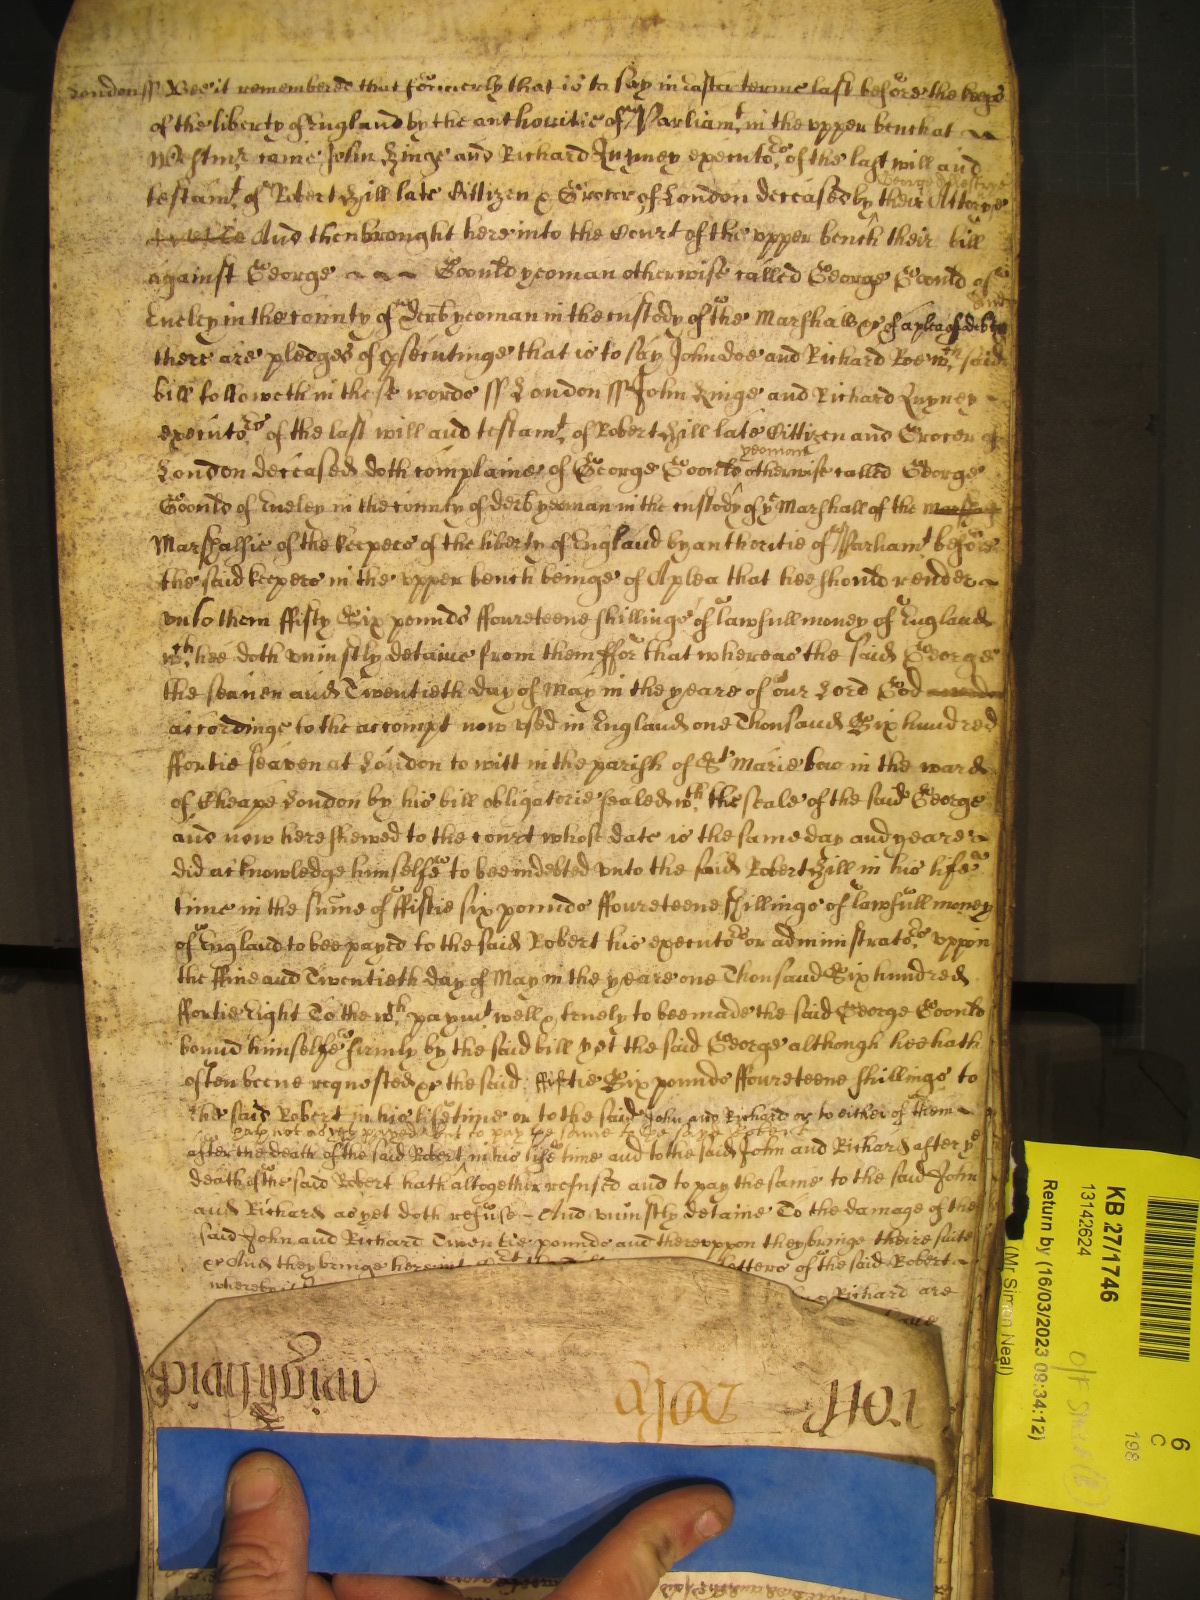 London ss Bee it remembred that formerly that is to say in Easter terme last before the keeps
of the liberty of England by the authoritie of Parliamt in the vpper bench at
Westmr came John Kinge and Richard executors of the last will and
testamt of Robert Hill late Cittizen & Grocer of London deceased by their Attorney
And then brought here into the Court of the vpper bench their bill
against George Goould yeoman otherwise called George Goould of
in the county of Derb yeoman in the custody of the Marshall &c of a plea of debt And
there are pledges of psecutinge that is to say John Doe and Richard Roe wch said
bill followeth in these words ss London ss John Kinge and Richard
executors of the last will and testamt of Robert Hill late Cittizen and Grocer of
London deceased doth complaine of George Goould yeoman otherwise called George
Goould of in the county of Derb yeoman in the custody of ye Marshall of the
Marshalsie of the keepers of the liberty of England by authoritie of Parliamt before
the said keepers in the vpper bench beinge of A plea that hee should render
vnto them ffifty Six pounds ffoureteene shillings of lawfull money of England
wch hee doth vniustly detaine from them ffor that whereas the said George
the seaven and Twentieth day of May in the yeare of our Lord God
accordinge to the accompt now vsed in England one Thousand Six hundred
ffortie seaven at London to witt in the parish of St Marie bow in the ward
of Cheape London by his bill obligatorie sealed wth the seale of the said George
and now here shewed to the court whose date is the same day and yeare
did acknowledge himselfe to bee indebted vnto the said Robert Hill in his life
time in the sume of ffiftie six pounds ffoureteene shillings of lawfull money
of England to bee payed to the said Robert his executors or administrators vppon
the ffive and Twentieth day of May in the yeare one Thousand Six hundred
ffortie eight To the wch paymt well & truely to bee made the said George Goould
bound himselfe firmly by the said bill yet the said George although hee hath
often beene requested &c the said ffiftie Six pounds ffoureteene shillings to
the said Robert in his life time or to the said John and Richard or to either of them
hath not as yet payed but to pay the same to the said Robert
after the death of the said Robert in his life time and to the said John and Richard after ye
death of the said Robert hath altogether refused and to pay the same to the said John
and Richard as yet doth refuse And vniustly detaine To the damage of the
said John and Richard Twentie pounds and therevppon they bringe theire suite
&c And they bringe here letters of the said Robert
whereby Richard are
have
roll
wightwick
KB 27/1746
13142624
Return by (16/03/2023 09:34:12)
(Mr Simon Neal)
6
C
198